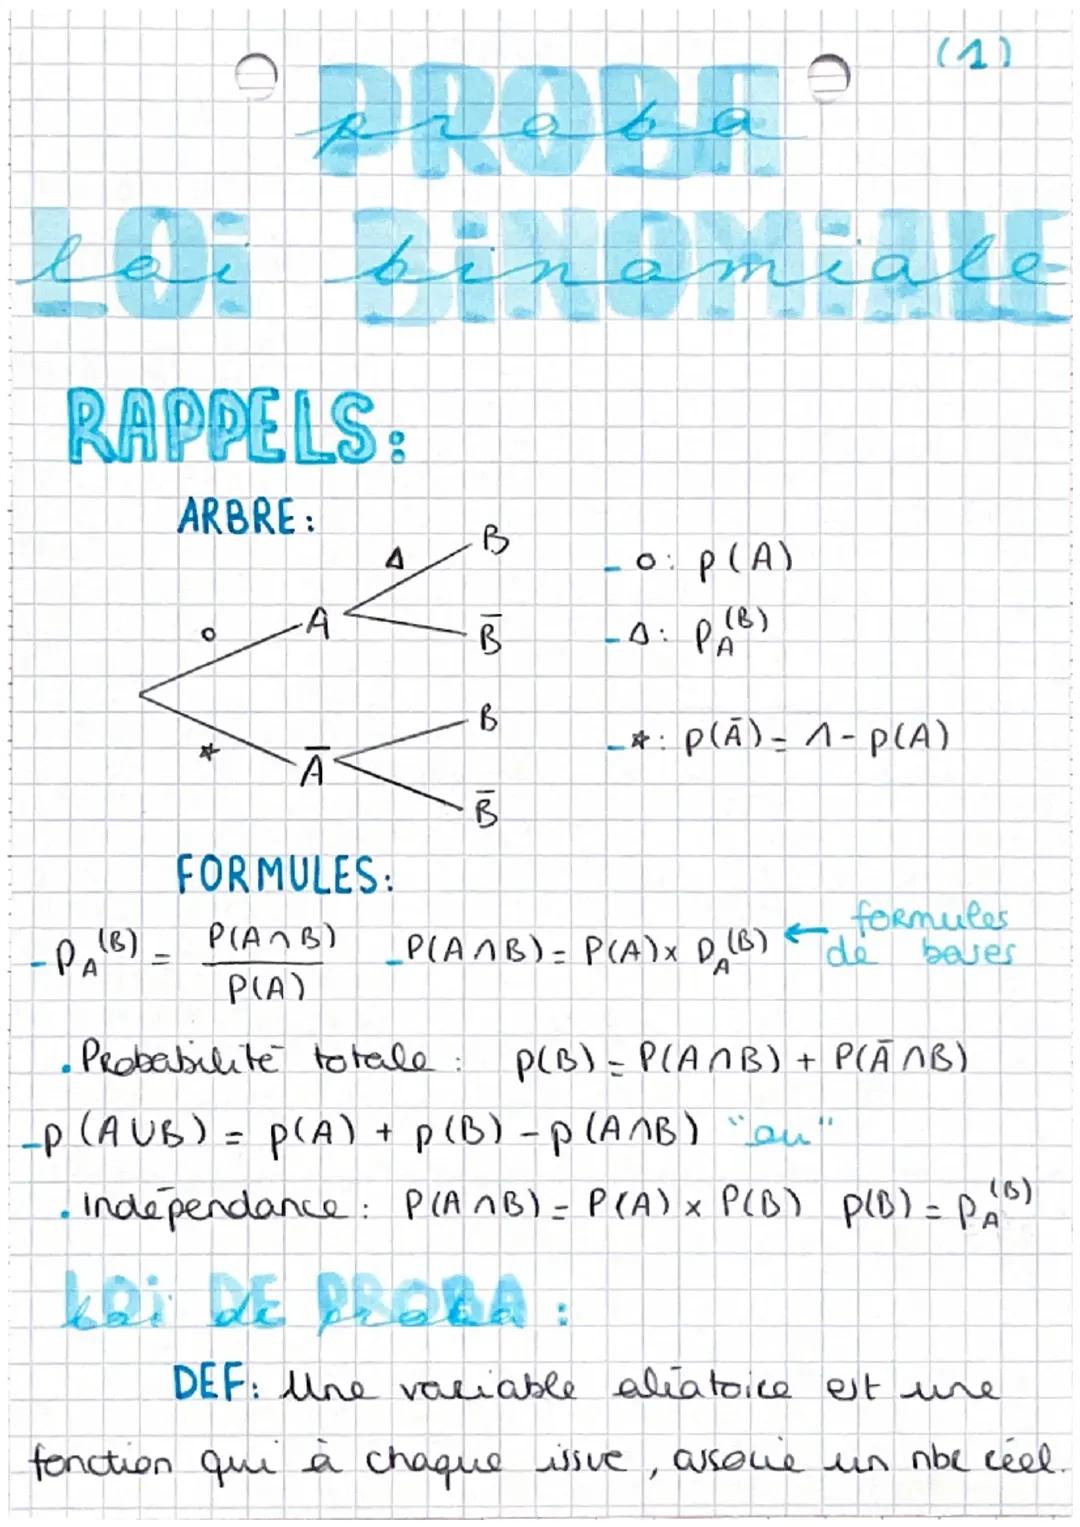 (1)
PROBA
proba
LOi BiNOMiALE
loi binomiale
RAPPELS:
ARBRE:
Δ B
o A B̅ - o: p(A)
- Δ: p_A(B)
* A̅ B - *: p(A̅) = 1 - p(A)
B̅
FORMULES:
- P_A(B) = P(A∩B) / P(A) - P(A∩B) = P(A) x P_A(B) ← formules de bases
. Probabilité totale : p(B) = P(A∩B) + P(A̅∩B)
- p(A∪B) = p(A) + p(B) - p(A∩B) "ou"
. indépendance : P(A∩B) = P(A) x P(B) p(B) = P_A(B)
LOi DE PROBA :
loi de proba
DEF: Une variable aléatoire est une
fonction qui à chaque issue, associe un nbr réel.